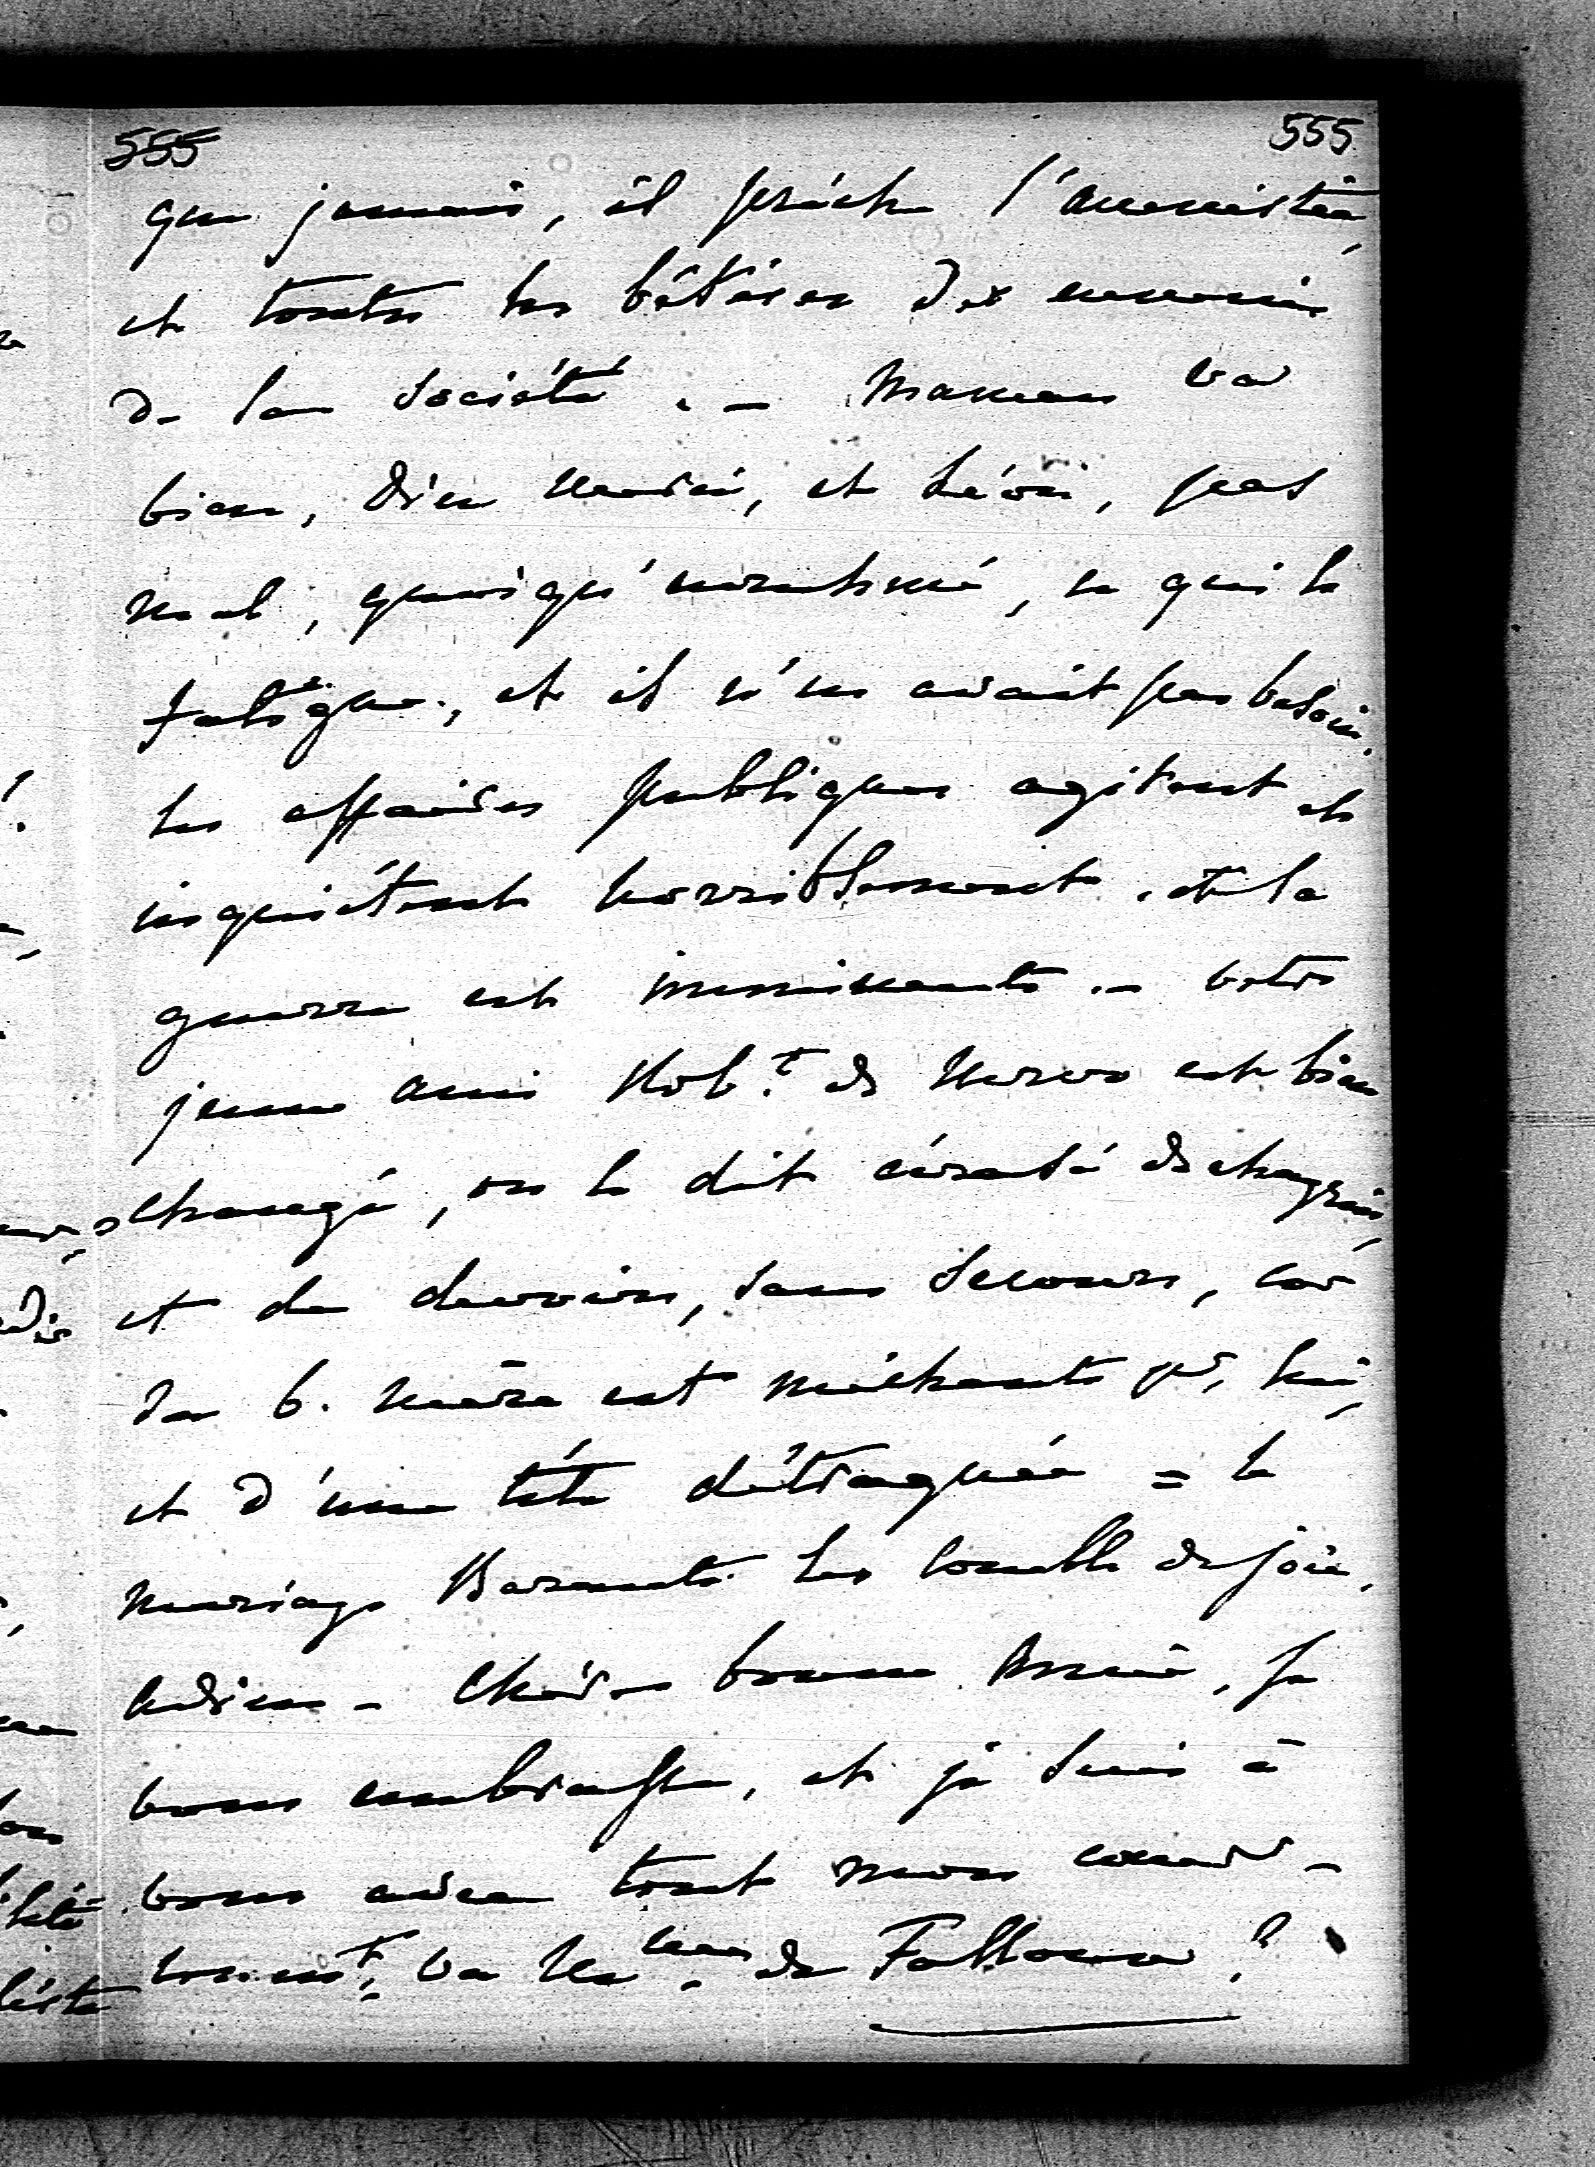 555 555
que jamais, il prêche l'amnistie,
et toutes les bêtises des ennemis
de la société. – Maman va
bien, Dieu merci, et Léon, pas
mal, quoiqu'enrhumé, ce qui le
fatigue, et il n'en avait pas besoin.
les affaires publiques agitent et
inquiètent horriblement. et la
guerre est imminente. – votre
jeune ami Rob.t de Nervo est bien
changé, on le dit écrasé de chagrin,
et de devoirs, sans secours, car
sa b. mère est méchante pr. lui,
et d'une tête détraquée = le
mariage Barante les comble de joie.
adieu – chère bonne Amie, je
vous embrasse, et je suis à
vous avec tout mon cœur –
comm.t va Me de Falloux ?